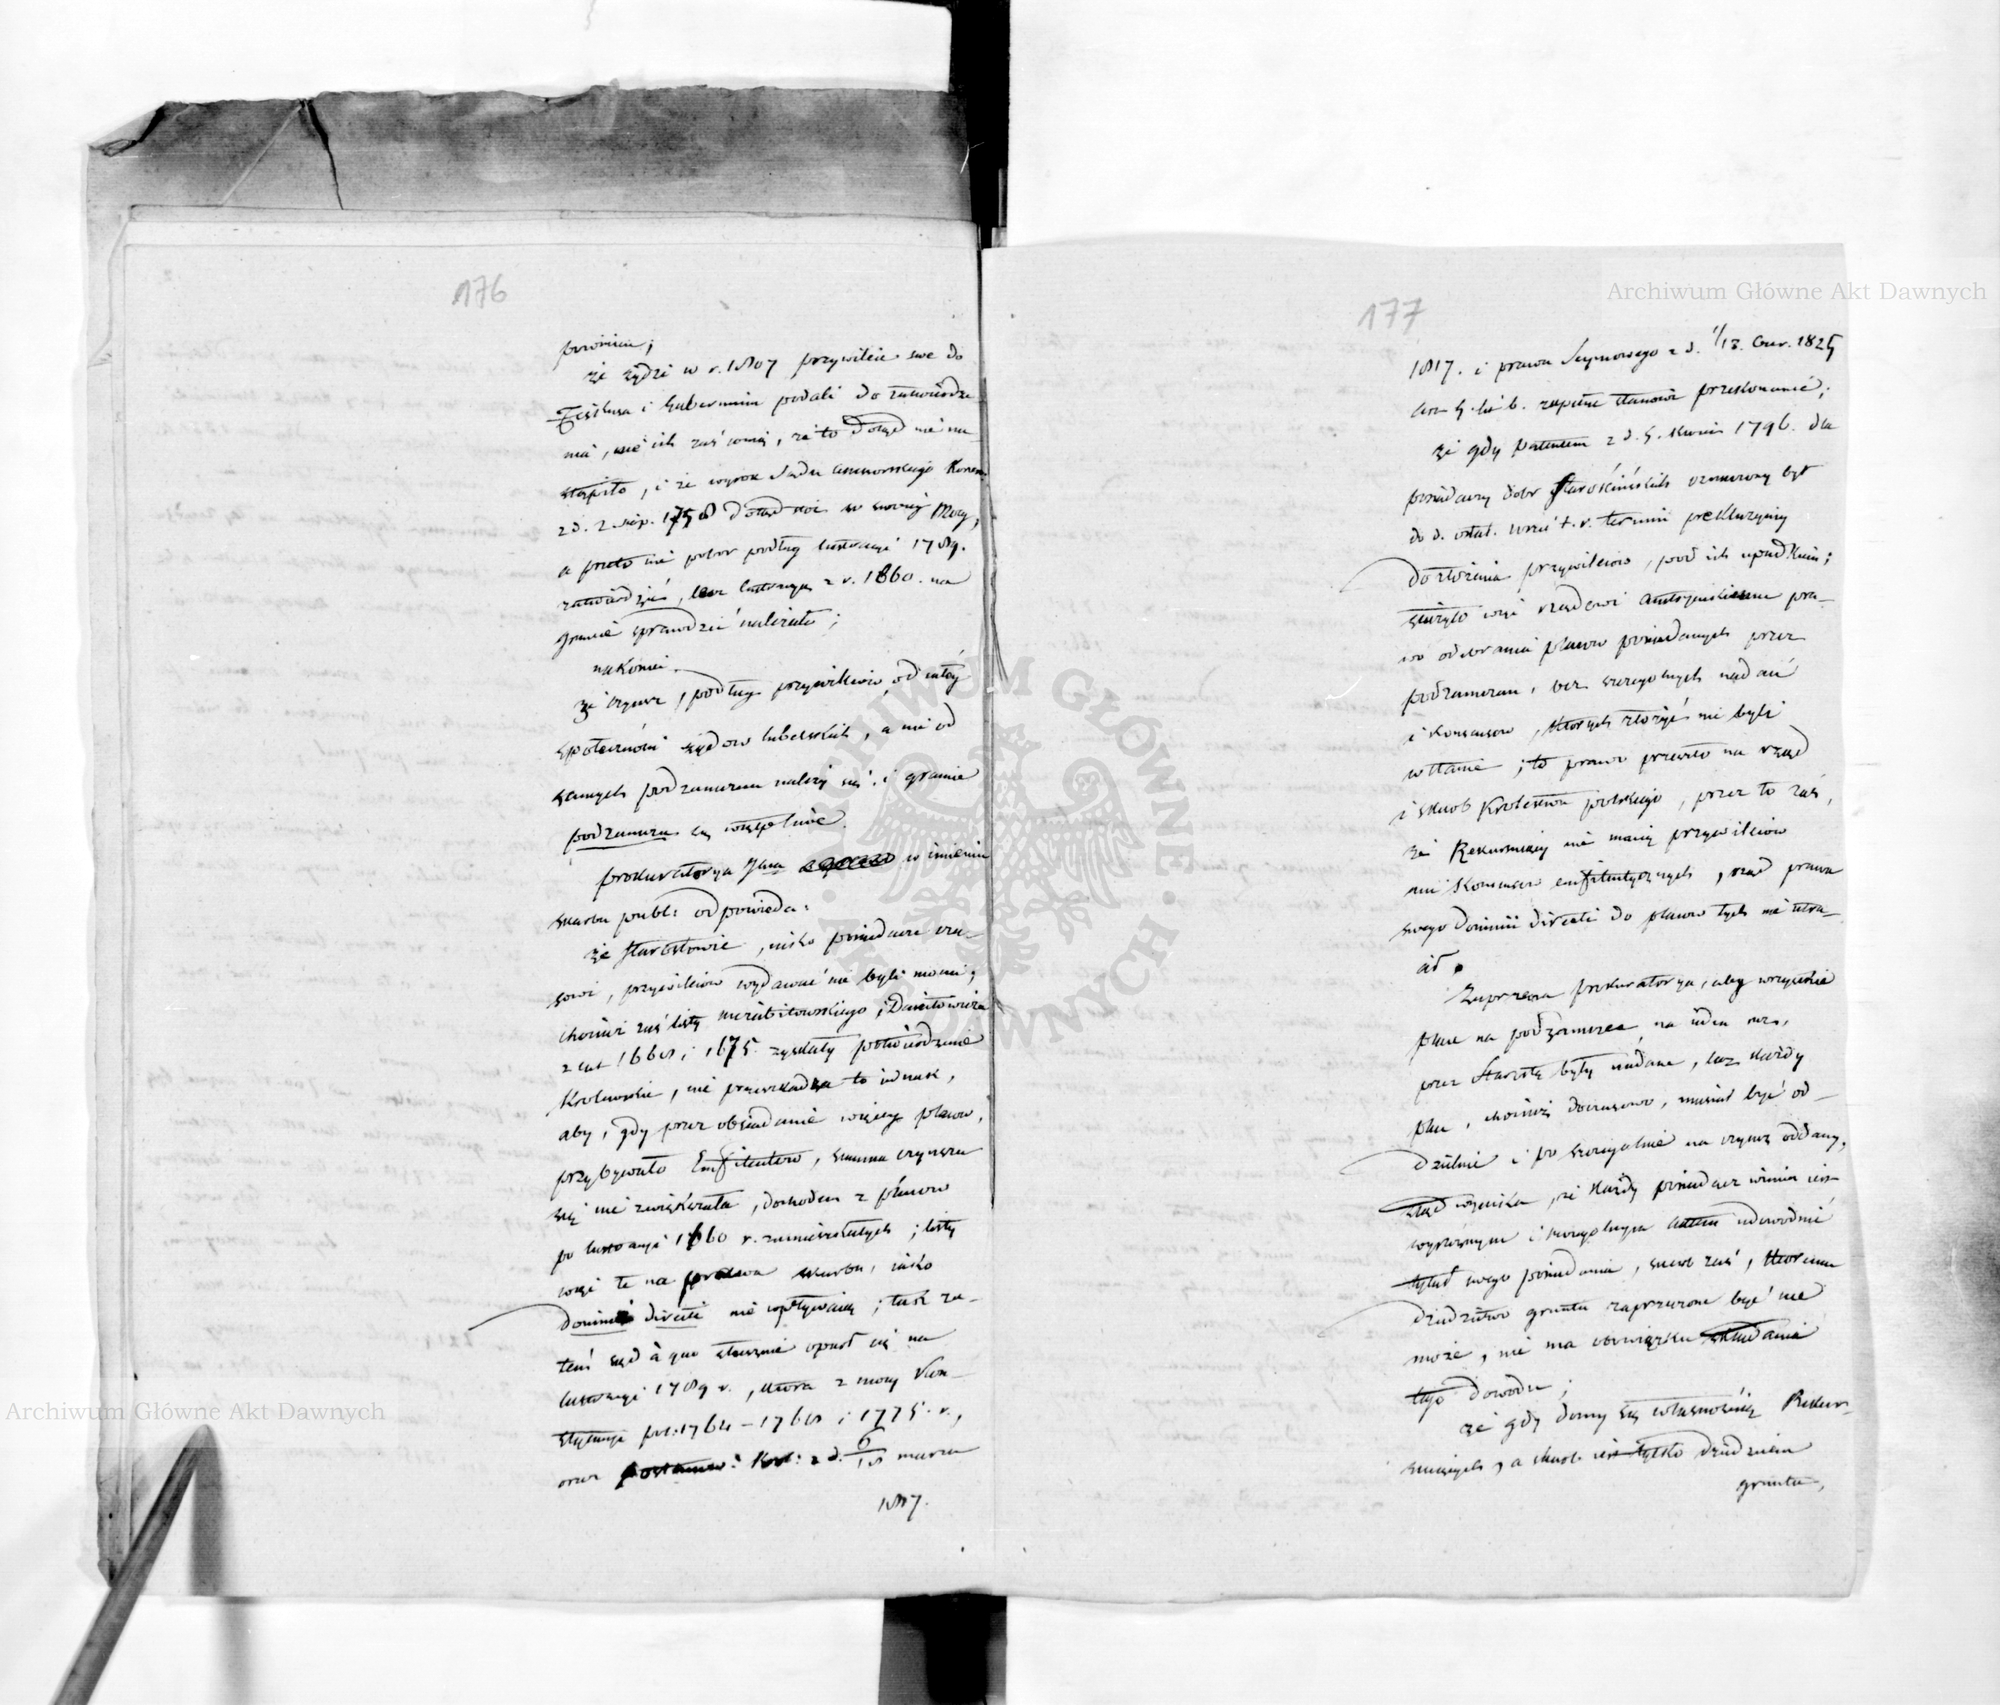 176
że żydzi w r. 1807 przywileie swe do
i Gubernium podali do zatwierdze-
nia, że to dotąd nie na-
stąpiło, i że wyrok Sądu Assessorskiego
z d. 2 sier. 1758 dotąd stoi w swoiey mocy,
a przeto nie pobor podług lustracyi 1789.
zatwierdzić, lecz lustracyą z r. 1660. na
gruncie sprawdzić należało;
nakoniec
że czynsz, podług przywileiow, od całey
społeczności żydow lubelskich, a nie od
samych podzamczan należy się, i granice
podzamcza są wątpliwe.
prokuratorya Jlna w imieniu
skarbu publ: odpowieda:
że Starostowie, iako posiadacze cza-
sowi, przywileiow wydawać nie byli mocni;
chociaż zaś listy i Daniłowicza
z lat 1668 i 1675. zyskały potwierdzenie
Krolewskie, nie przeszkadza to iednak,
aby, gdy przez obsiadanie więcey placow,
przybywało Emfiteutow, summa czynszu
się nie zwiększała, dochodem z placow
po lustracyi 1660 r. zamieszkałych; listy
więc te na prawa skarbu, iako
dominii directi nie wpływaią; tak za-
tem sąd à quo słusznie oparł się na
lustracyi 1789 r., ktora z mocy Kon-
stytucyi pol: 1764 – 1768 i 1775. r.,
oraz postanow: Krol: z d. 6/18 marca
1817.
177
1817. i prawa Seymowego z d. 1/13. Czer. 1825
art 5. lit b. zupełne stanowi przekonanie;
że gdy patentem z d. 5. Kwiet 1796. dla
posiadaczy dobr Starościńskich oznaczony był
do d. ostat. t. r. termin prekluzyiny
do złożenia przywileiow, pod ich upadkiem;
służyło więc rządowi Austryackiemu pra-
wo odebrania placow posiadanych przez
podzamczan, bez szczegolnych nadań
i konsensow, ktorych złożyć nie byli
w stanie; to prawo przeszło na rząd
i skarb Krolestwa polskiego, przez to zaś,
że Rekurruiący nie maią przywileiow
ani Konsensow emfiteutycznych, rząd prawa
swego dominii directi do placow tych nie utra-
cił.
Zaprzecza prokuratorya, aby wszystkie
place na podzamczu, na ieden raz,
przez Starostę były nadane, lecz każdy
plac, chociaż doczasowo, musiał być od-
dzielnie i po szczegolnie na czynsz oddany,
ztąd wynika, że każdy posiadacz winien iest
wyraźnym i szczegolnym aktem udowodnić
tytuł swego posiadania, skarb zaś, ktoremu
dziedzictwo gruntu zaprzeczone być nie
może, nie ma obowiązku składania
tego dowodu;
że gdy domy są własnością Rekur-
ruiących, a skarb iest tylko dziedzicem
gruntu,
Archiwum Główne Akt Dawnych
Archiwum Główne Akt Dawnych
ARCHIWUM GŁÓWNE AKT DAWNYCH